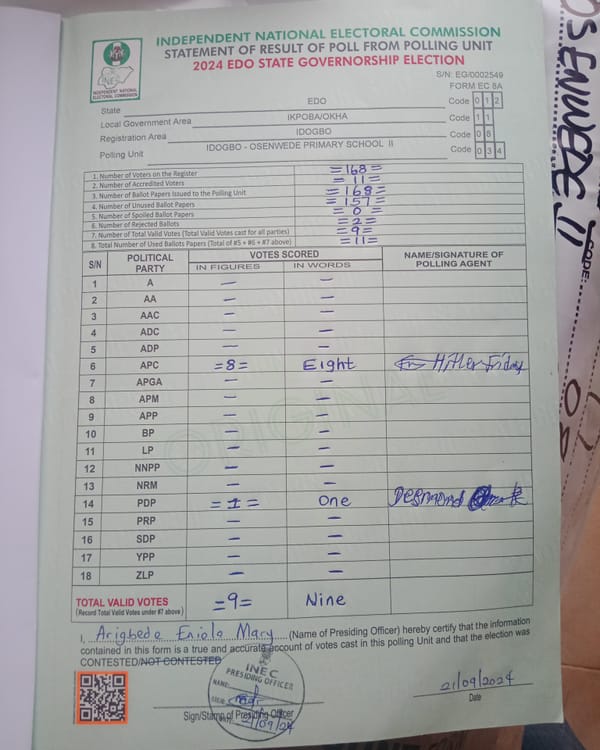 INDEPENDENT NATIONAL ELECTORAL COMMISSION
STATEMENT OF RESULT OF POLL FROM POLLING UNIT
2024 EDO STATE GOVERNORSHIP ELECTION
INEC
INDEPENDENT NATIONAL
ELECTORAL COMMISSION
S/N: EG/0002549
FORM EC 8A
State EDO Code 0 1 2
Local Government Area IKPOBA/OKHA Code 1 1
Registration Area IDOGBO Code 0 8
Polling Unit IDOGBO - OSENWEDE PRIMARY SCHOOL II Code 0 3 4
1. Number of Voters on the Register =168=
2. Number of Accredited Voters =11=
3. Number of Ballot Papers Issued to the Polling Unit =168=
4. Number of Unused Ballot Papers =157=
5. Number of Spoiled Ballot Papers =0=
6. Number of Rejected Ballots =2=
7. Number of Total Valid Votes (Total Valid Votes cast for all parties) =9=
8. Total Number of Used Ballots Papers (Total of #5 + #6 + #7 above) =11=
S/N POLITICAL PARTY VOTES SCORED NAME/SIGNATURE OF POLLING AGENT
IN FIGURES IN WORDS
1 A — —
2 AA — —
3 AAC — —
4 ADC — —
5 ADP — —
6 APC =8= Eight Hitler Friday
7 APGA — —
8 APM — —
9 APP — —
10 BP — —
11 LP — —
12 NNPP — —
13 NRM — —
14 PDP =1= One Desmond
15 PRP — —
16 SDP — —
17 YPP — —
18 ZLP — —
ORIGINAL
TOTAL VALID VOTES =9= Nine
(Record Total Valid Votes under #7 above)
I, Arigbede Eniola Mary (Name of Presiding Officer) hereby certify that the information
contained in this form is a true and accurate account of votes cast in this polling Unit and that the election was
CONTESTED/NOT CONTESTED
INEC
PRESIDING OFFICER
NAME:
21/09/24
Sign/Stamp of Presiding Officer
21/09/2024
Date
OSENWEDE II
CODE:
08